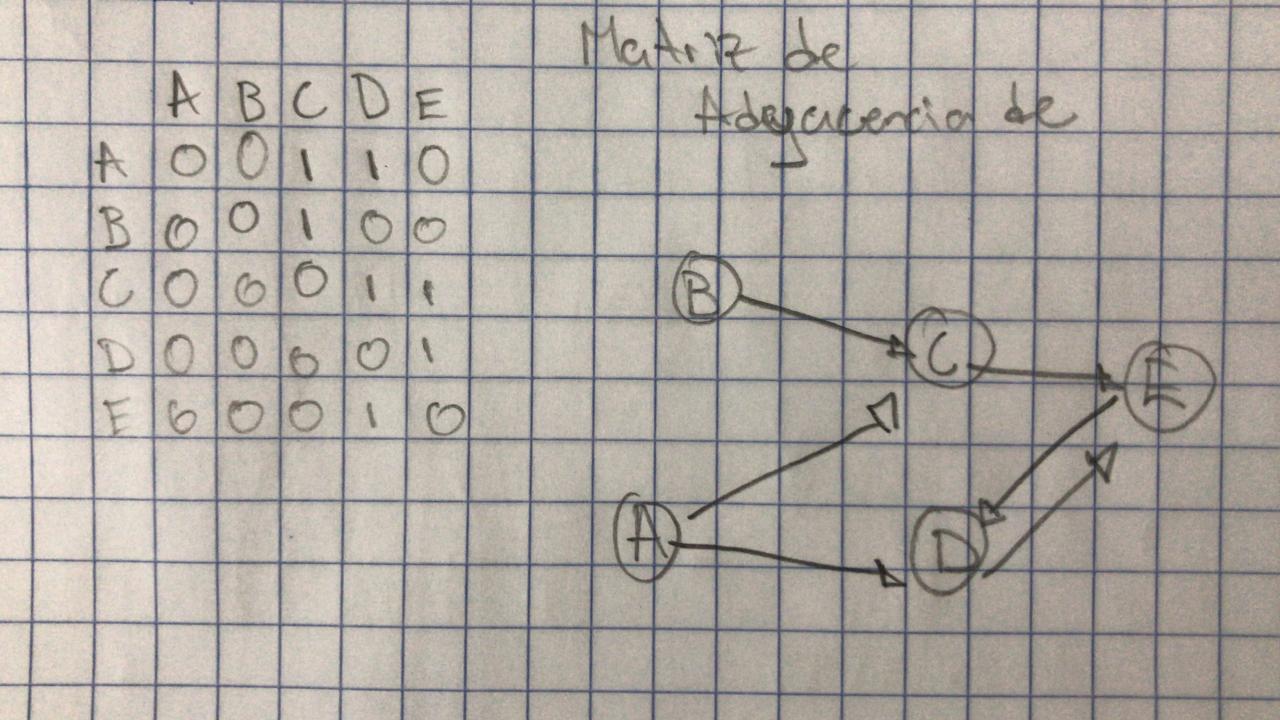 Matriz de
Adeyacencia de
A B C D E
A 0 0 1 1 0
B 0 0 1 0 0
C 0 0 0 1 1
D 0 0 0 0 1
E 0 0 0 1 0
B
C
E
A
D